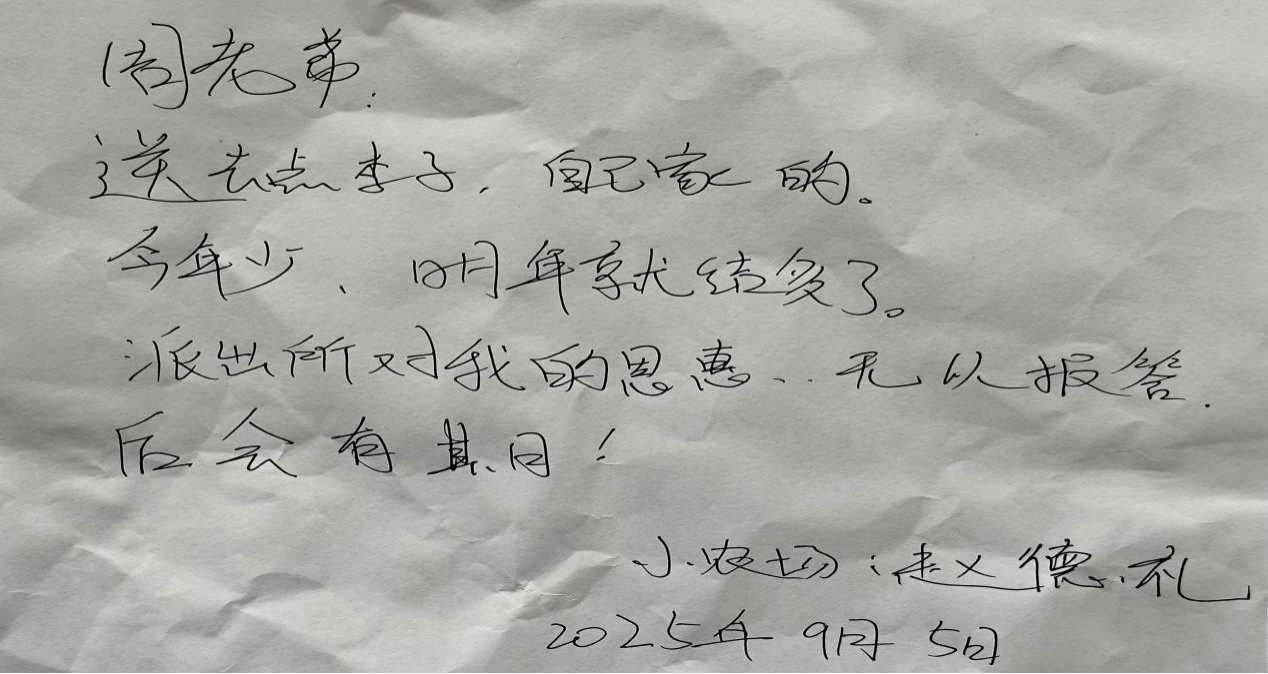 周老弟:
送去点李子，自己家的。
今年少、明年就结多了。
派出所对我的恩惠..无以报答.
后会有其日！
小农场:赵义德.礼
2025年9月5日